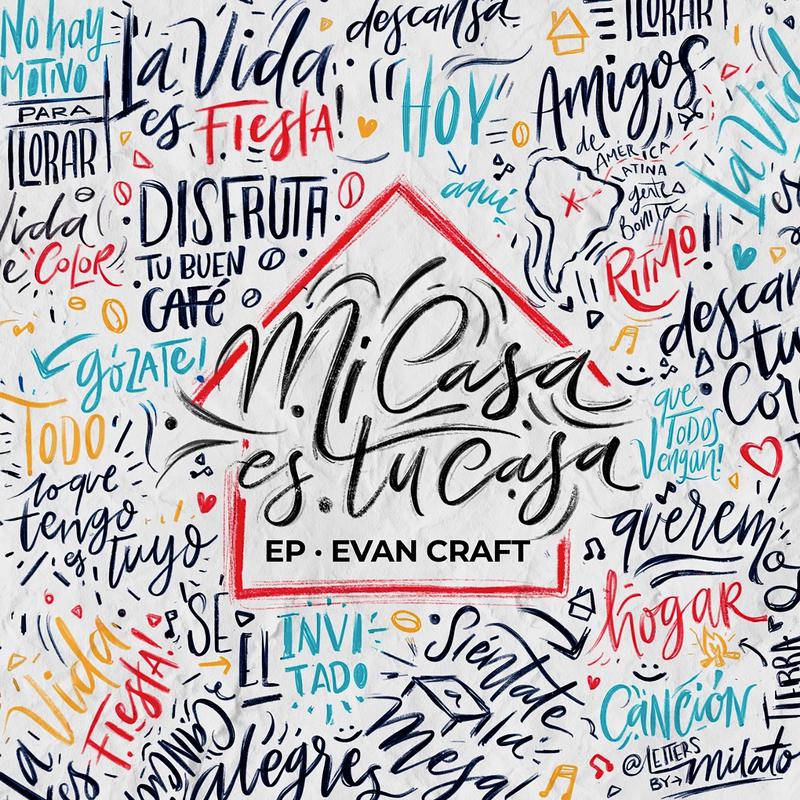 No hay
MOTIVO
PARA
LLORAR
La Vida
es FIESTA!
descansa
HOY
aquí
LLORAR
Amigos
de AMÉRICA
LATINA
gente
Bonita
La Vid
es
Vida
e COLOR
DISFRUTA
TU BUEN
CAFÉ
RITMO!
descan
tu
Cor
GÓZATE!
Mi Casa
es tu casa
EP · EVAN CRAFT
que
TODOS
Vengan!
TODO
lo que
tengo
es tuyo
querem
hogar
TIERRA
SÉ
EL
INVI
TADO
Siéntate
a la
Mesa
Vida
Fiesta!
La
es
CANCIÓN
alegres
CANCIÓN
@LETTERS
BY→milato